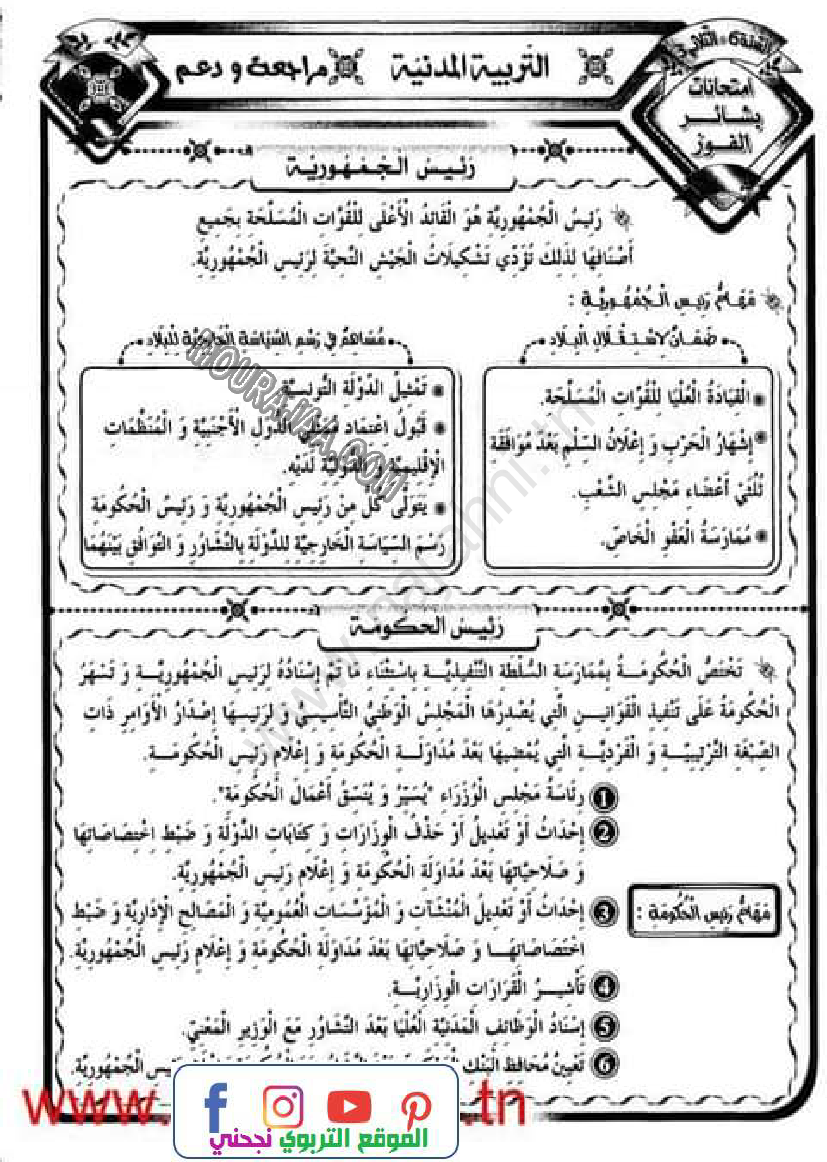 السنة 6 * الثلاثي 3
امتحانات
بشائر
الفوز
التربية المدنية مراجعة و دعم
رَئِيسُ الْجُمْهُورِيَّة
رَئِيسُ الْجُمْهُورِيَّةِ هُوَ الْقَائِدُ الْأَعْلَى لِلْقُوَّاتِ الْمُسَلَّحَة بِجَمِيعِ
أَصْنَافِهَا لِذَلِكَ تُؤَدِّي تَشْكِيلَاتُ الْجَيْشِ التَّحِيَّةَ لِرَئِيسِ الْجُمْهُورِيَّةِ.
مَهَامُّ رَئِيسِ الْجُمْهُورِيَّةِ :
ضَمَانُ اسْتِقْلَالِ الْبِلَادِ
• الْقِيَادَةُ الْعُلْيَا لِلْقُوَّاتِ الْمُسَلَّحَة.
• إِشْهَارُ الْحَرْبِ وَ إِعْلَانُ السِّلْمِ بَعْدَ مُوَافَقَة
ثُلُثَيْ أَعْضَاءِ مَجْلِسِ الشَّعْبِ.
• مُمَارَسَةُ الْعَفْوِ الْخَاصِّ.
مُسَاهِمٌ فِي رَسْمِ السِّيَاسَةِ الْخَارِجِيَّةِ لِلْبِلَادِ
• تَمْثِيلُ الدَّوْلَةِ التُّونِسِيَّة
• قَبُولُ اِعْتِمَادِ مُمَثِّلِي الدُّوَلِ الْأَجْنَبِيَّةِ وَ الْمُنَظَّمَاتِ
الْإِقْلِيمِيَّةِ وَ الدُّوَلِيَّةِ لَدَيْهِ.
• يَتَوَلَّى كُلٌّ مِنْ رَئِيسِ الْجُمْهُورِيَّةِ وَ رَئِيسُ الْحُكُومَة
رَسْمَ السِّيَاسَةِ الْخَارِجِيَّةِ لِلدَّوْلَةِ بِالتَّشَاوُرِ وَ التَّوَافُقِ بَيْنَهُمَا
MOURAJAA.COM
www.najahni.tn
رَئِيسُ الحُكُومَة
تَخْتَصُّ الْحُكُومَةُ بِمُمَارَسَةِ السُّلْطَةِ التَّنْفِيذِيَّةِ بِاسْتِثْنَاءِ مَا تَمَّ إِسْنَادُهُ لِرَئِيسِ الْجُمْهُورِيَّةِ وَ تَسْهَرُ
الْحُكُومَةُ عَلَى تَنْفِيذِ الْقَوَانِينِ الَّتِي يُصْدِرُهَا الْمَجْلِسُ الْوَطَنِيُّ التَّأْسِيسِيُّ وَ لِرَئِيسِهَا إِصْدَارُ الْأَوَامِرِ ذَاتِ
الصِّبْغَةِ التَّرْتِيبِيَّةِ وَ الْفَرْدِيَّةِ الَّتِي يُمْضِيهَا بَعْدَ مُدَاوَلَةِ الْحُكُومَةِ وَ إِعْلَامِ رَئِيسِ الْحُكُومَةِ.
مَهَامُّ رَئِيسِ الْحُكُومَةِ :
1 رِئَاسَةُ مَجْلِسِ الْوُزَرَاءِ "يُسَيِّرُ وَ يُنَسِّقُ أَعْمَالَ الْحُكُومَةِ".
2 إِحْدَاثُ أَوْ تَعْدِيلُ أَوْ حَذْفُ الْوِزَارَاتِ وَ كِتَابَاتِ الدَّوْلَةِ وَ ضَبْطِ اِخْتِصَاصَاتِهَا
وَ صَلَاحِيَّاتِهَا بَعْدَ مُدَاوَلَةِ الْحُكُومَةِ وَ إِعْلَامِ رَئِيسِ الْجُمْهُورِيَّةِ.
3 إِحْدَاثُ أَوْ تَعْدِيلُ الْمُنْشَآتِ وَ الْمُؤَسَّسَاتِ الْعُمُومِيَّةِ وَ الْمَصَالِحِ الْإِدَارِيَّةِ وَ ضَبْطِ
اخْتِصَاصَاتِهَا وَ صَلَاحِيَّاتِهَا بَعْدَ مُدَاوَلَةِ الْحُكُومَةِ وَ إِعْلَامِ رَئِيسِ الْجُمْهُورِيَّةِ.
4 تَأْشِيرُ الْقَرَارَاتِ الْوِزَارِيَّةِ.
5 إِسْنَادُ الْوَظَائِفِ الْمَدَنِيَّةِ الْعُلْيَا بَعْدَ التَّشَاوُرِ مَعَ الْوَزِيرِ الْمَعْنِيِّ.
6 تَعْيِينُ مُحَافِظِ الْبَنْكِ رَئِيسِ الْجُمْهُورِيَّةِ.
www. .tn
الموقع التربوي نجحني